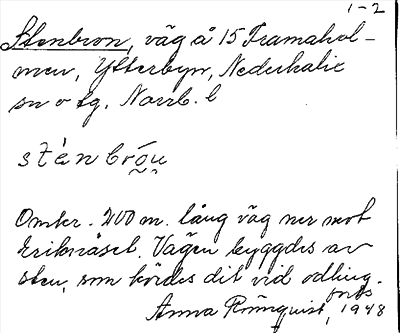 1-2
Stenbron, väg å 15 Framahol-
men, Ytterbyn, Nederkalix
sn o tg, Norrb. l
sténbróu̯
Omkr. 200 m. lång väg ner mot
Eriksnäset. Vägen byggdes av
sten, som kördes dit vid odling.
Anna Rönnquist, 1948